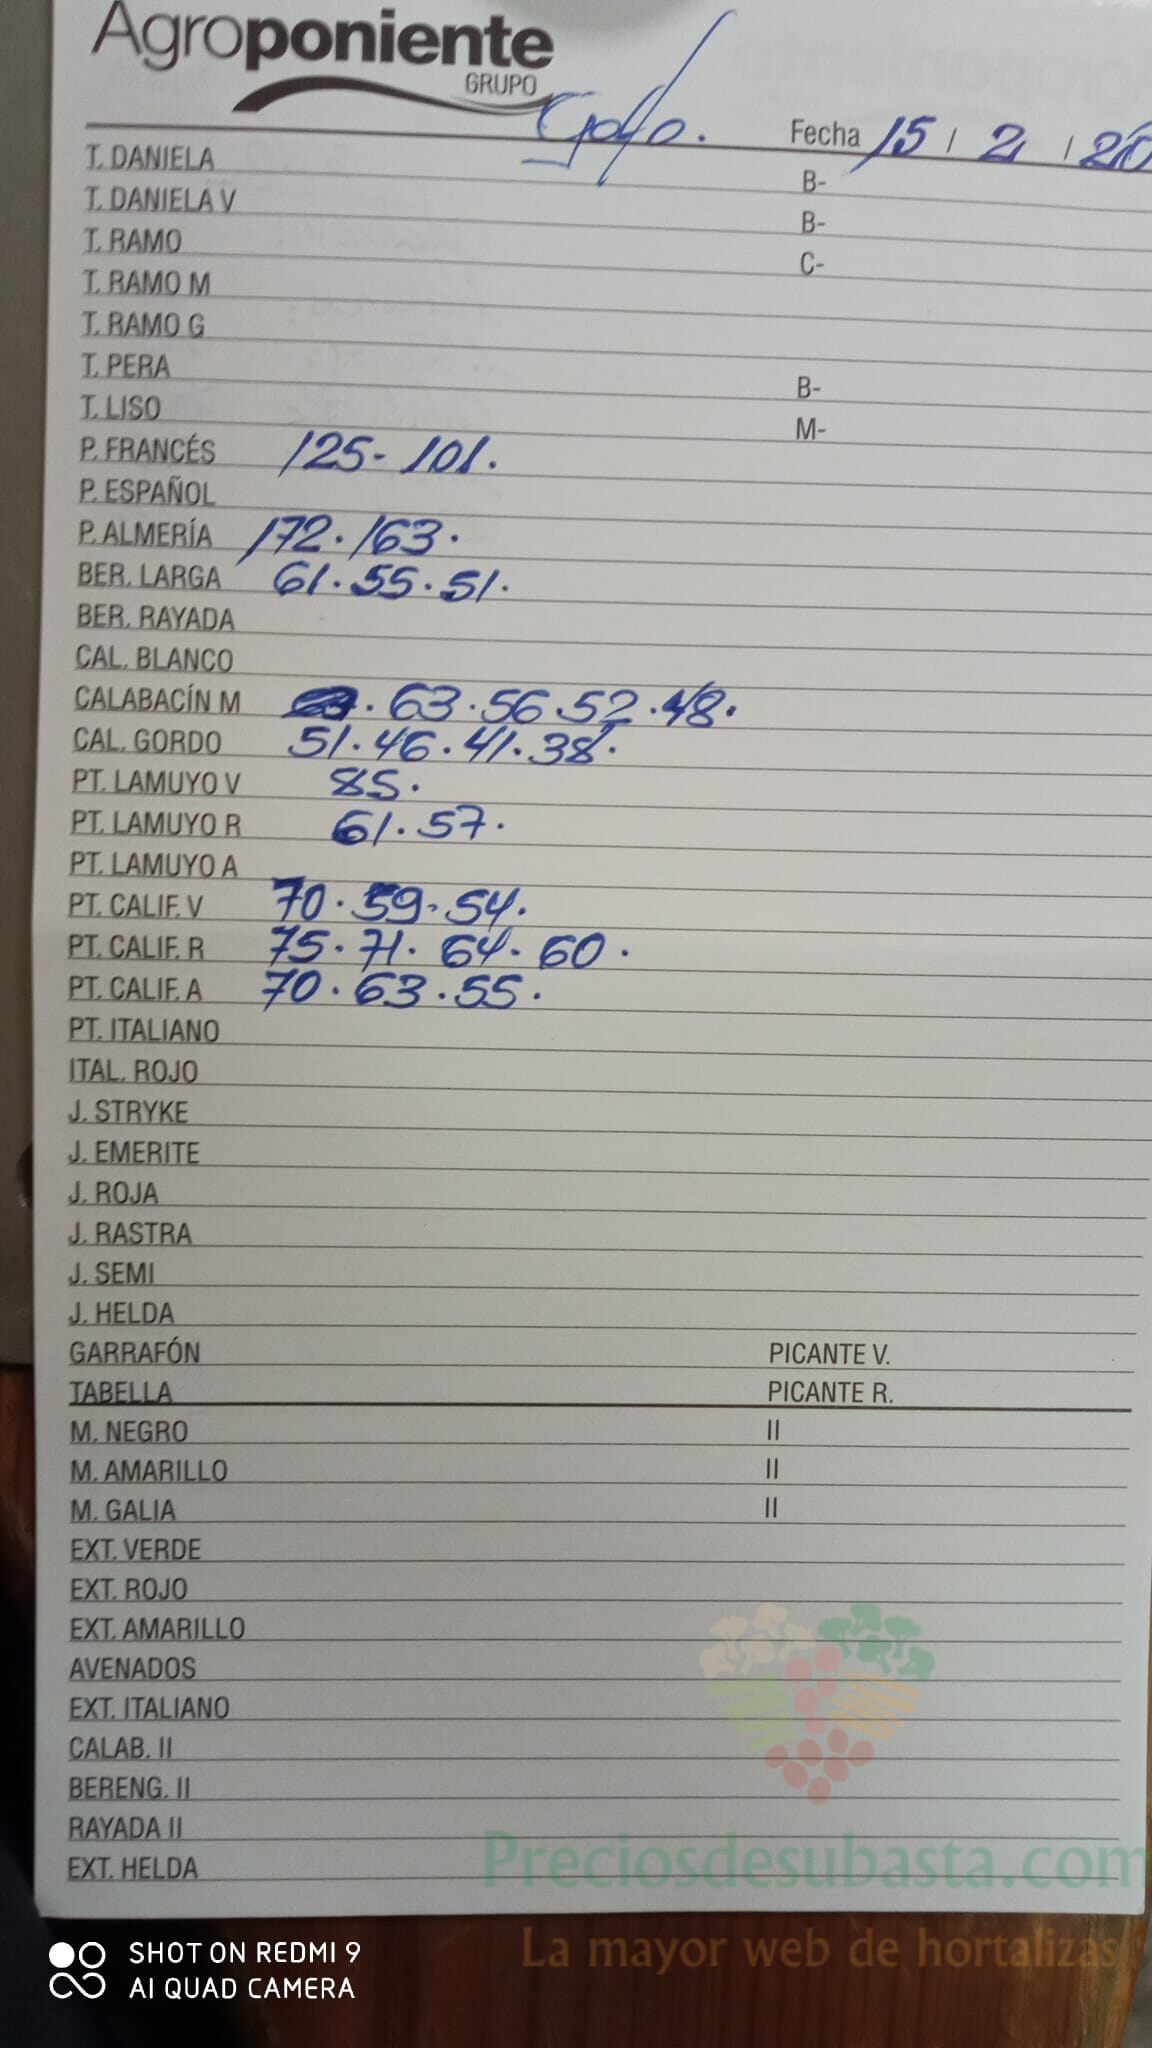 Agroponiente
GRUPO
Golfo. Fecha 15 / 2 / 20
T. DANIELA B-
T. DANIELA V B-
T. RAMO C-
T. RAMO M
T. RAMO G
T. PERA B-
T. LISO M-
P. FRANCÉS 125- 101.
P. ESPAÑOL
P. ALMERÍA 172. 163.
BER. LARGA 61. 55. 51.
BER. RAYADA
CAL. BLANCO
CALABACÍN M . 63. 56. 52. 48.
CAL. GORDO 51. 46. 41. 38.
PT. LAMUYO V 85.
PT. LAMUYO R 61. 57.
PT. LAMUYO A
PT. CALIF. V 70. 59. 54.
PT. CALIF. R 75. 71. 64. 60.
PT. CALIF. A 70. 63. 55.
PT. ITALIANO
ITAL. ROJO
J. STRYKE
J. EMERITE
J. ROJA
J. RASTRA
J. SEMI
J. HELDA
GARRAFÓN PICANTE V.
TABELLA PICANTE R.
M. NEGRO II
M. AMARILLO II
M. GALIA II
EXT. VERDE
EXT. ROJO
EXT. AMARILLO
AVENADOS
EXT. ITALIANO
CALAB. II
BERENG. II
RAYADA II
EXT. HELDA
Preciosdesubasta.com
La mayor web de hortalizas
SHOT ON REDMI 9
AI QUAD CAMERA